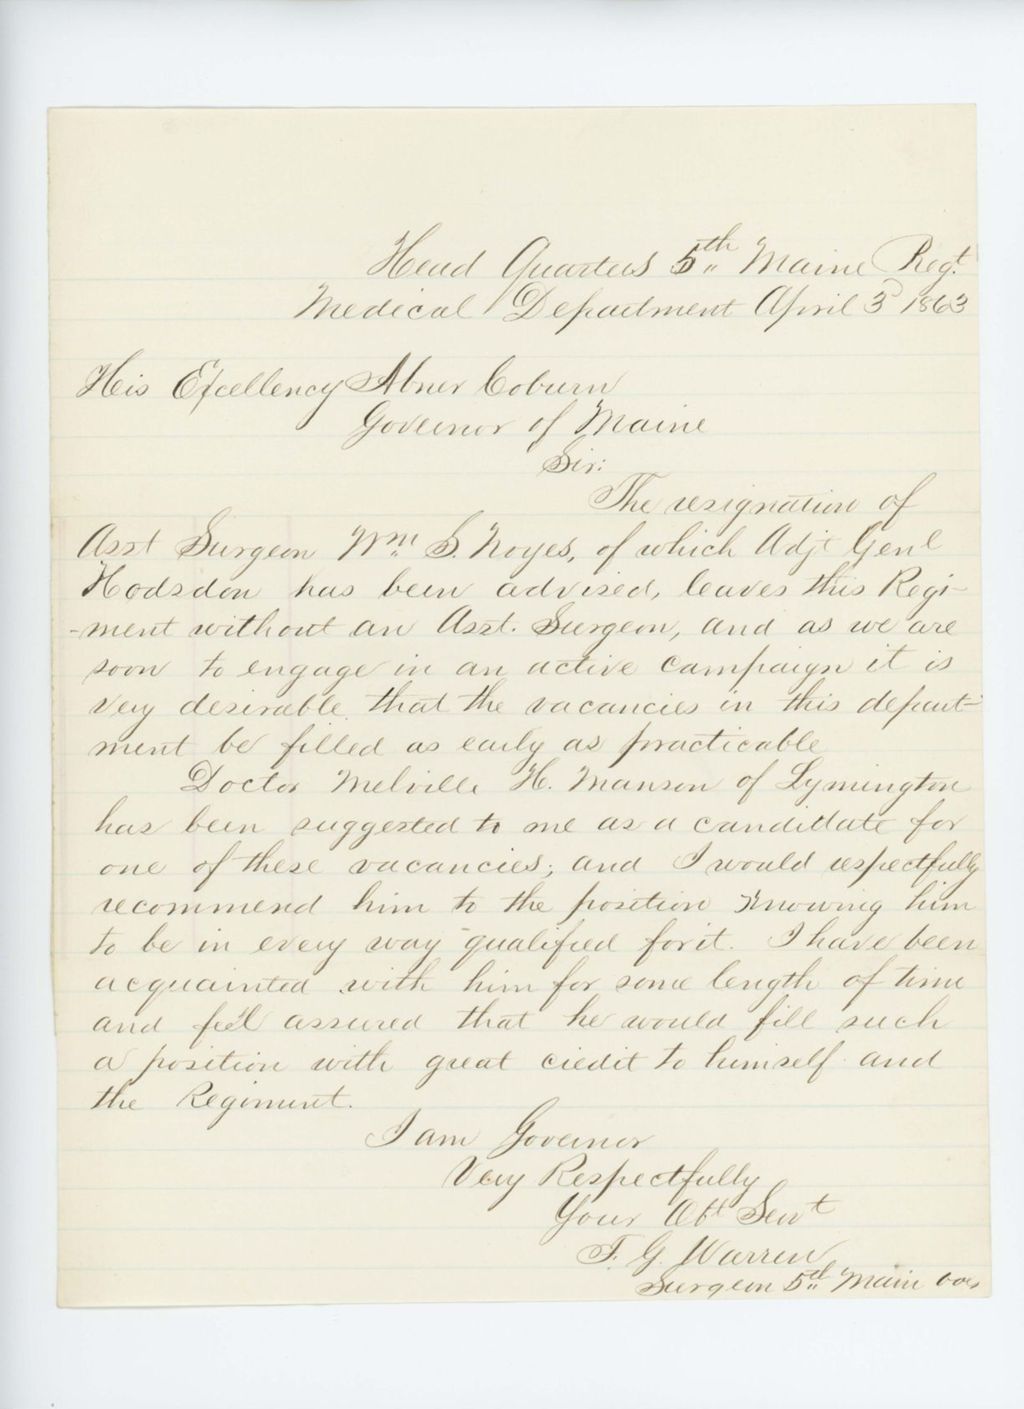 Head Quarters 5th Maine Regt.
Medical Department April 3d 1863
His Excellency Abner Coburn
Governor of Maine
Sir:
The resignation of
Asst Surgeon Wm. S. Noyes, of which Adjt Genl
Hodsdon has been advised, leaves this Regi-
-ment without an Asst. Surgeon, and as we are
soon to engage in an active campaign it is
very desirable that the vacancies in this depart-
ment be filled as early as practicable
Doctor Melville H. Manson of Lymington
has been suggested to me as a candidate for
one of these vacancies; and I would respectfully
recommend him to the position knowing him
to be in every way qualified for it. I have been
acquainted with him for some length of time
and feel assured that he would fill such
a position with great credit to himself and
the Regiment.
I am Governor
Very Respectfully
Your Obt Servt
F. G. Warren
Surgeon 5th Maine Vols